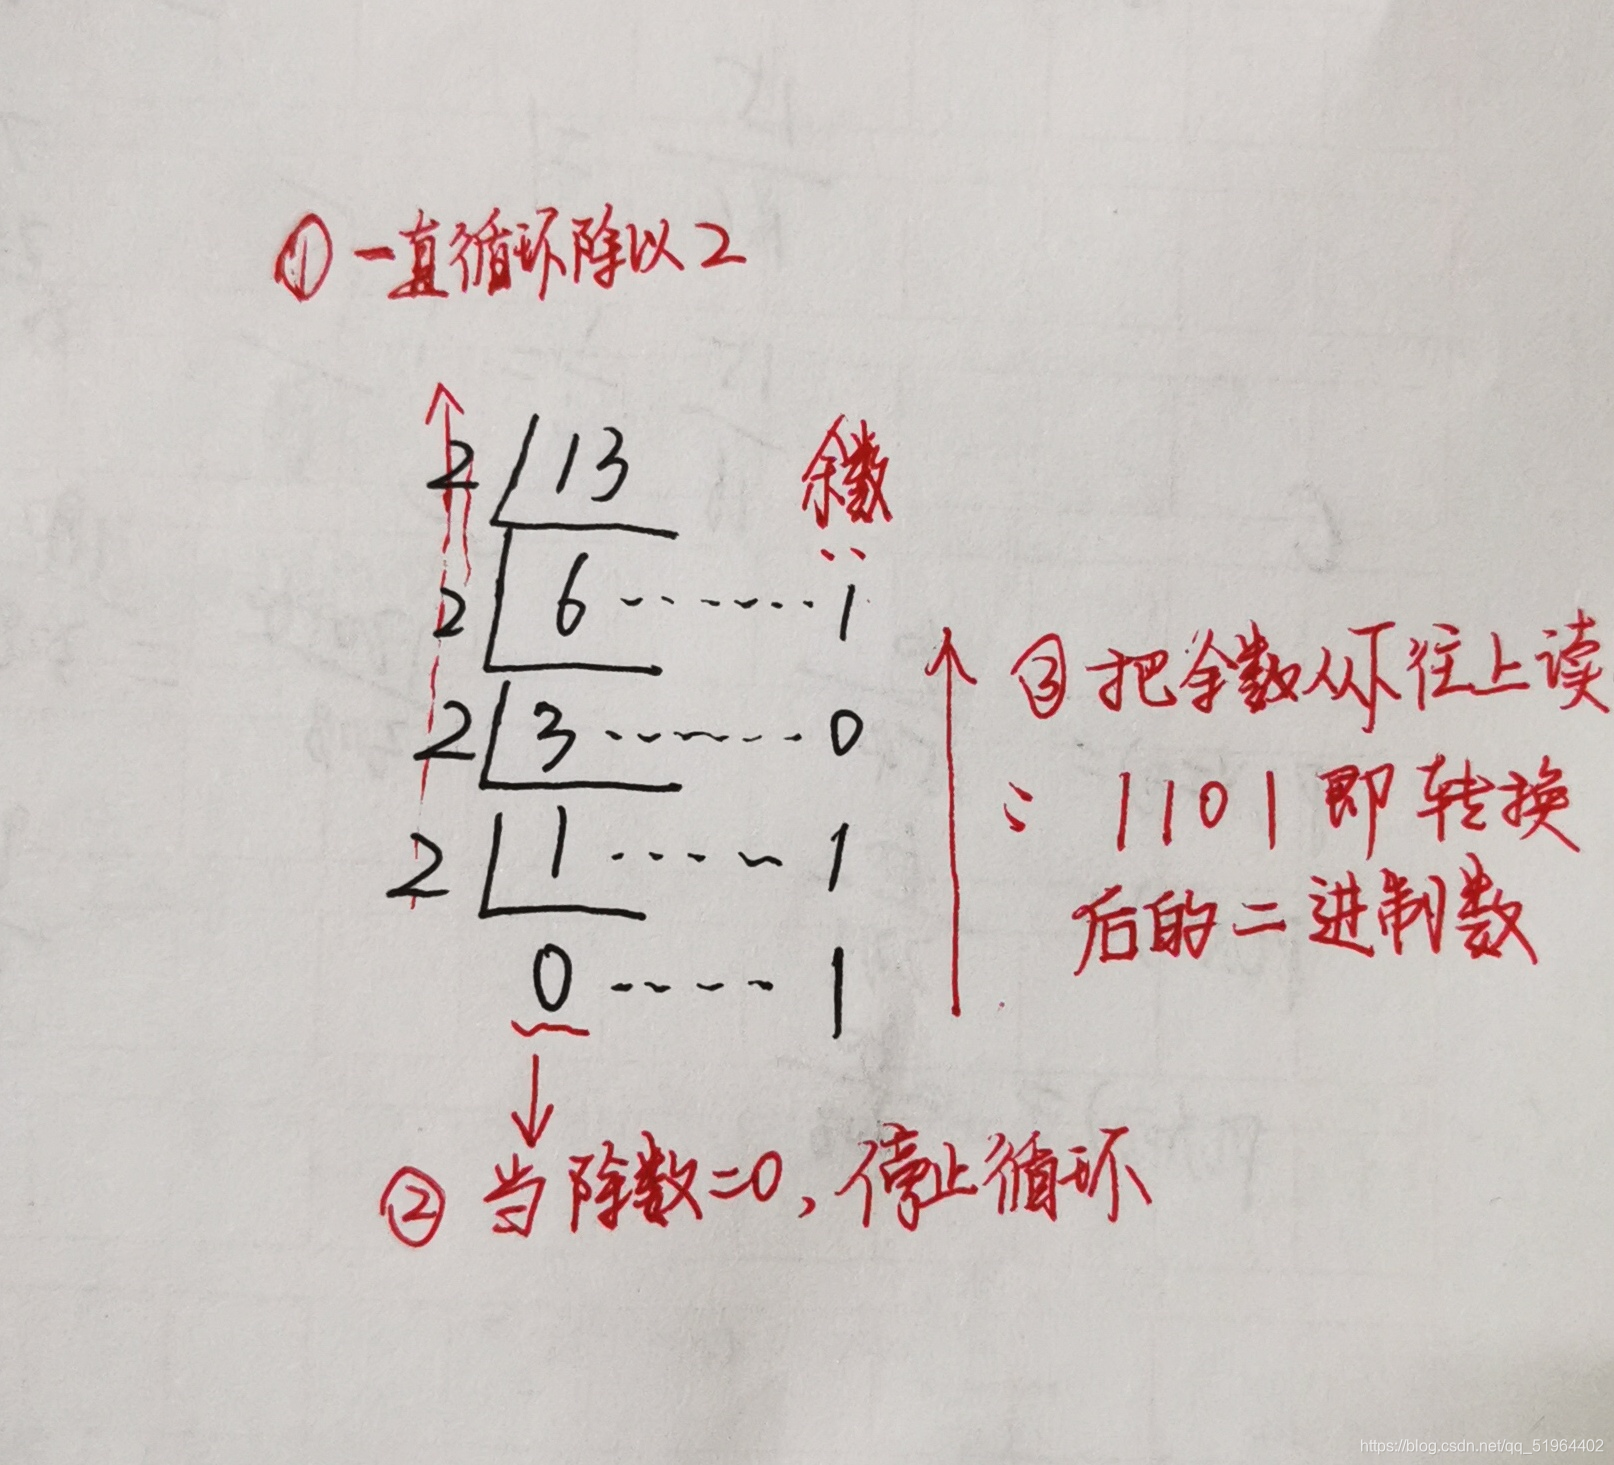 ① 一直循环除以2
2 13 余数
2 6 ------- 1
2 3 ------- 0
2 1 ------- 1
0 ------- 1
③ 把余数从下往上读
∴ 1101 即转换
后的二进制数
② 当除数=0，停止循环
https://blog.csdn.net/qq_51964402